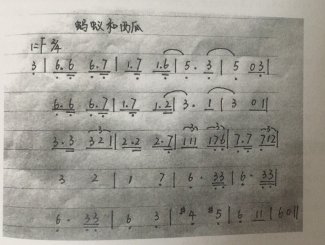 蚂蚁和西瓜
1=F 2/4
3 | 6.6 6.7 | 1.7 1.6 | 5.3 | 5 03 |
6.6 6.7 | 1.7 1.2 | 3.1 | 3 01 |
3.3 321 | 2.2 2.7 | 111 176 | 7.7 712 |
3 2 | 1 7 | 6.33 | 6.33 |
6.33 | 6 3 | #4 #5 | 6 11 | 601 |